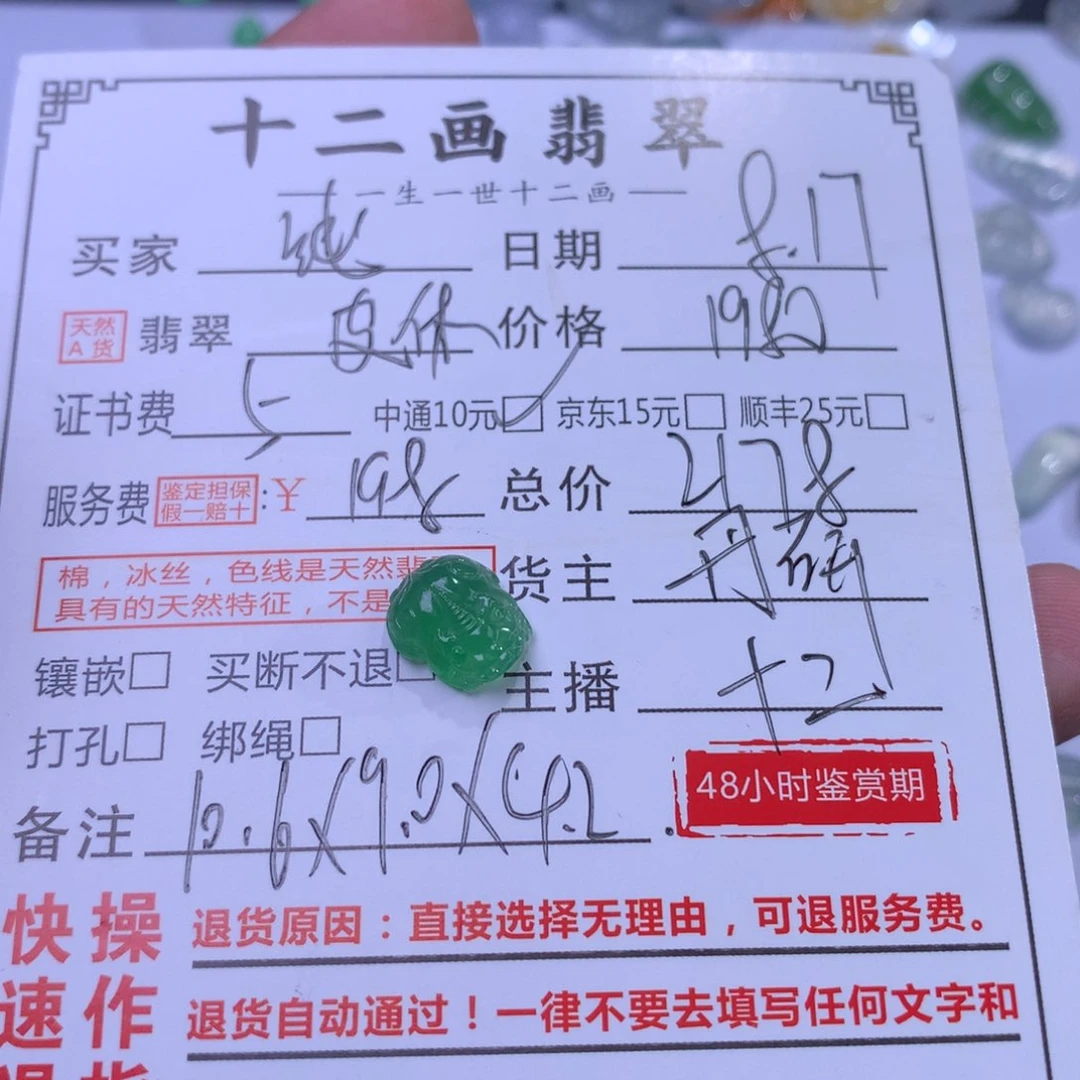 十二画翡翠
一生一世十二画
买家 纯 日期 8.17
天然A货 翡翠 皮休 价格 1980
证书费 5 中通10元☑ 京东15元□ 顺丰25元□
服务费 鉴定担保 假一赔十 :¥ 198 总价 2178
棉，冰丝，色线是天然翡
具有的天然特征，不是
货主
镶嵌□ 买断不退□ 主播 十二
打孔□ 绑绳□
48小时鉴赏期
备注 10.6×9.0×4.2
快操
速作
退货原因：直接选择无理由，可退服务费。
退货自动通过！一律不要去填写任何文字和